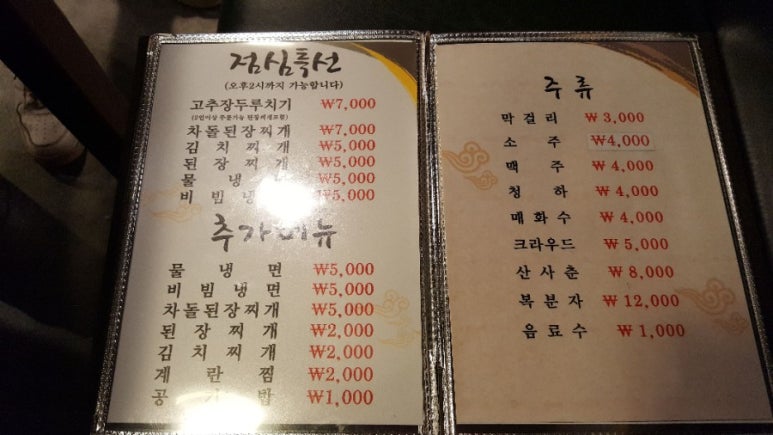 점심특선
(오후2시까지 가능합니다)
고추장두루치기 ₩7,000
(2인이상 주문가능 된장찌개포함)
차돌된장찌개 ₩7,000
김치찌개 ₩5,000
된장찌개 ₩5,000
물냉면 ₩5,000
비빔냉면 ₩5,000
추가메뉴
물냉면 ₩5,000
비빔냉면 ₩5,000
차돌된장찌개 ₩5,000
된장찌개 ₩2,000
김치찌개 ₩2,000
계란찜 ₩2,000
공기밥 ₩1,000
주류
막걸리 ₩3,000
소주 ₩4,000
맥주 ₩4,000
청하 ₩4,000
매화수 ₩4,000
크라우드 ₩5,000
산사춘 ₩8,000
복분자 ₩12,000
음료수 ₩1,000